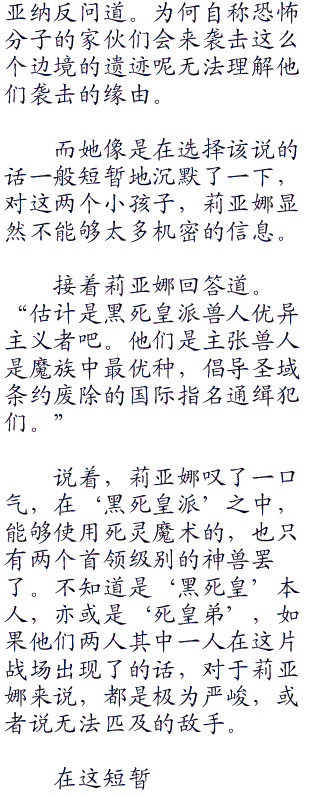 亚纳反问道。为何自称恐怖
分子的家伙们会来袭击这么
个边境的遗迹呢无法理解他
们袭击的缘由。
而她像是在选择该说的
话一般短暂地沉默了一下，
对这两个小孩子，莉亚娜显
然不能够太多机密的信息。
接着莉亚娜回答道。
“估计是黑死皇派兽人优异
主义者吧。他们是主张兽人
是魔族中最优种，倡导圣域
条约废除的国际指名通缉犯
们。”
说着，莉亚娜叹了一口
气，在‘黑死皇派’之中，
能够使用死灵魔术的，也只
有两个首领级别的神兽罢
了。不知道是‘黑死皇’本
人，亦或是‘死皇弟’，如
果他们两人其中一人在这片
战场出现了的话，对于莉亚
娜来说，都是极为严峻，或
者说无法匹及的敌手。
在这短暂